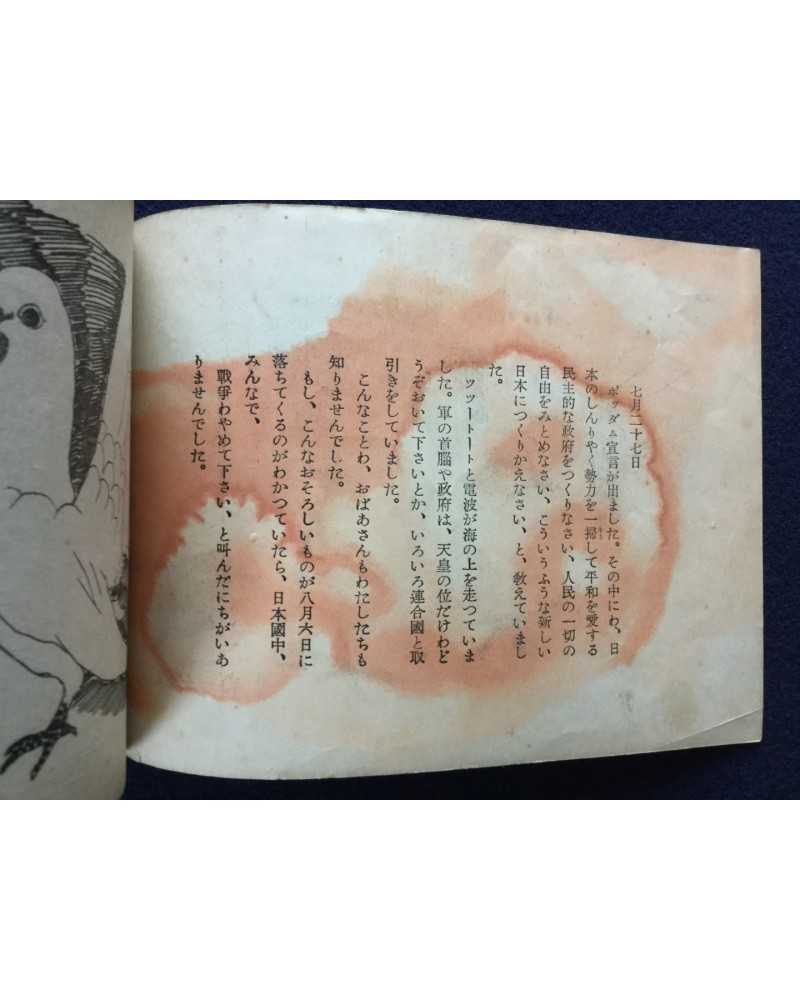 七月二十七日
ポツダム宣言が出ました。その中にわ、日
本のしんりやく勢力を一掃して平和を愛する
民主的な政府をつくりなさい、人民の一切の
自由をみとめなさい、こういうふうな新しい
日本につくりかえなさい、と、教えていまし
た。
ツツートートと電波が海の上を走つていま
した。軍の首脳や政府は、天皇の位だけわど
うぞおいて下さいとか、いろいろ連合國と取
引きをしていました。
こんなことわ、おばあさんもわたしたちも
知りませんでした。
もし、こんなおそろしいものが八月六日に
落ちてくるのがわかつていたら、日本國中、
みんなで、
戰爭わやめて下さい、と叫んだにちがいあ
りませんでした。